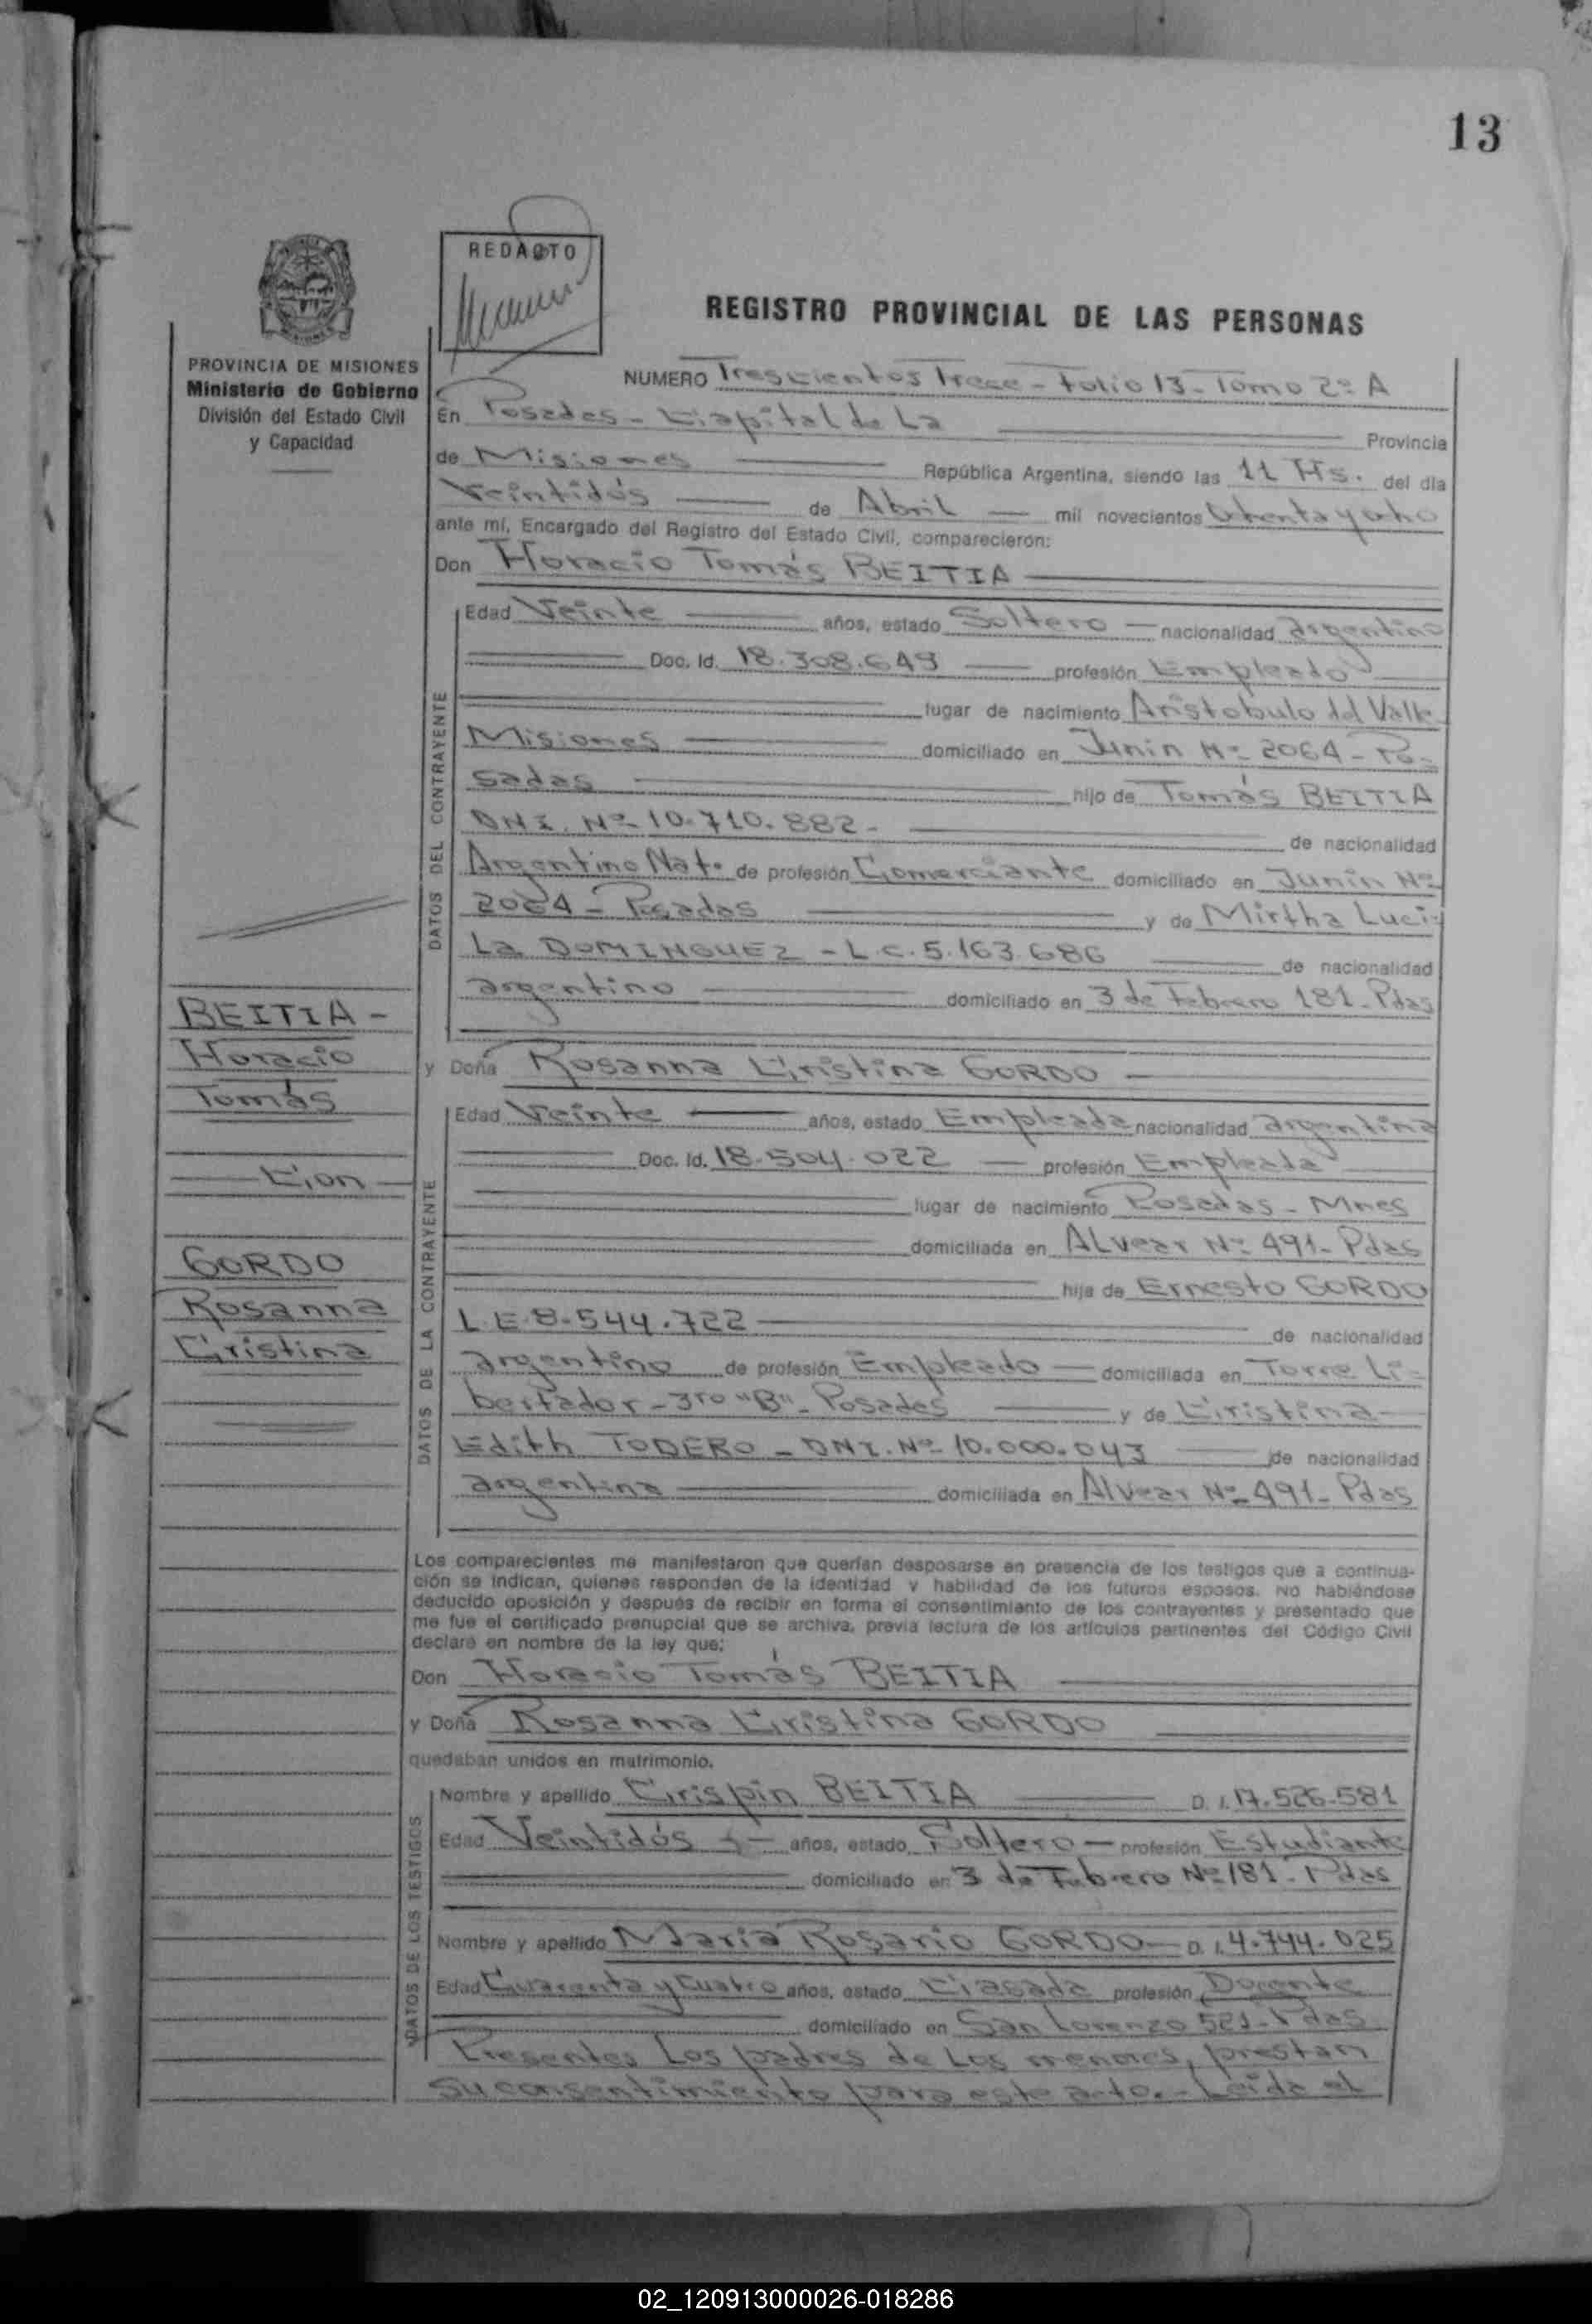 13
REDACTO
REGISTRO PROVINCIAL DE LAS PERSONAS
PROVINCIA DE MISIONES
Ministerio de Gobierno
División del Estado Civil
y Capacidad
NUMERO Trescientos Trece - Folio 13 - Tomo 2º A
En Posadas - Capital de La Provincia
de Misiones República Argentina, siendo las 11 Hs. del día
Veintidós de Abril mil novecientos Ochenta y ocho
ante mí, Encargado del Registro del Estado Civil, comparecieron:
Don Horacio Tomás BEITIA
DATOS DEL CONTRAYENTE
Edad Veinte años, estado Soltero nacionalidad argentino
Doc. Id. 18.308.649 profesión Empleado
lugar de nacimiento Aristobulo del Valle
Misiones domiciliado en Junin Nº 2064 - Po-
sadas hijo de Tomás BEITIA
DNI. Nº 10.710.882 - de nacionalidad
Argentino Nat. de profesión Comerciante domiciliado en Junin Nº
2064 - Posadas y de Mirtha Luci-
La DOMINGUEZ - L.C. 5.163.686 de nacionalidad
argentino domiciliado en 3 de Febrero 181 - Pdas
BEITIA -
Horacio
Tomás
Con
GORDO
Rosanna
Cristina
y Doña Rosanna Cristina GORDO
DATOS DE LA CONTRAYENTE
Edad Veinte años, estado Empleada nacionalidad argentina
Doc. Id. 18.504.022 profesión Empleada
lugar de nacimiento Posadas - Mnes
domiciliada en ALvear Nº 491 - Pdas
hija de Ernesto GORDO
L E 8.544.722 de nacionalidad
argentino de profesión Empleado domiciliada en Torre Li-
bertador - 3ro "B" - Posadas y de Cristina
Edith TODERO - DNI. Nº 10.000.043 de nacionalidad
argentina domiciliada en Alvear Nº 491 - Pdas
Los comparecientes me manifestaron que querían desposarse en presencia de los testigos que a continua-
ción se indican, quienes responden de la identidad y habilidad de los futuros esposos. No habiéndose
deducido oposición y después de recibir en forma el consentimiento de los contrayentes y presentado que
me fue el certificado prenupcial que se archiva, previa lectura de los artículos pertinentes del Código Civil
declaro en nombre de la ley que:
Don Horacio Tomás BEITIA
y Doña Rosanna Cristina GORDO
quedaban unidos en matrimonio.
DATOS DE LOS TESTIGOS
Nombre y apellido Crispin BEITIA D. I. 17.526.581
Edad Veintidós años, estado Soltero profesión Estudiante
domiciliado en 3 de Febrero Nº 181 - Pdas
Nombre y apellido María Rosario GORDO D. I. 4.744.025
Edad Cuarenta y cuatro años, estado Casada profesión Docente
domiciliado en San Lorenzo 521 - Pdas
Presentes Los padres de Los menores, prestan
su consentimiento para este acto. - Leída el
02_120913000026-018286